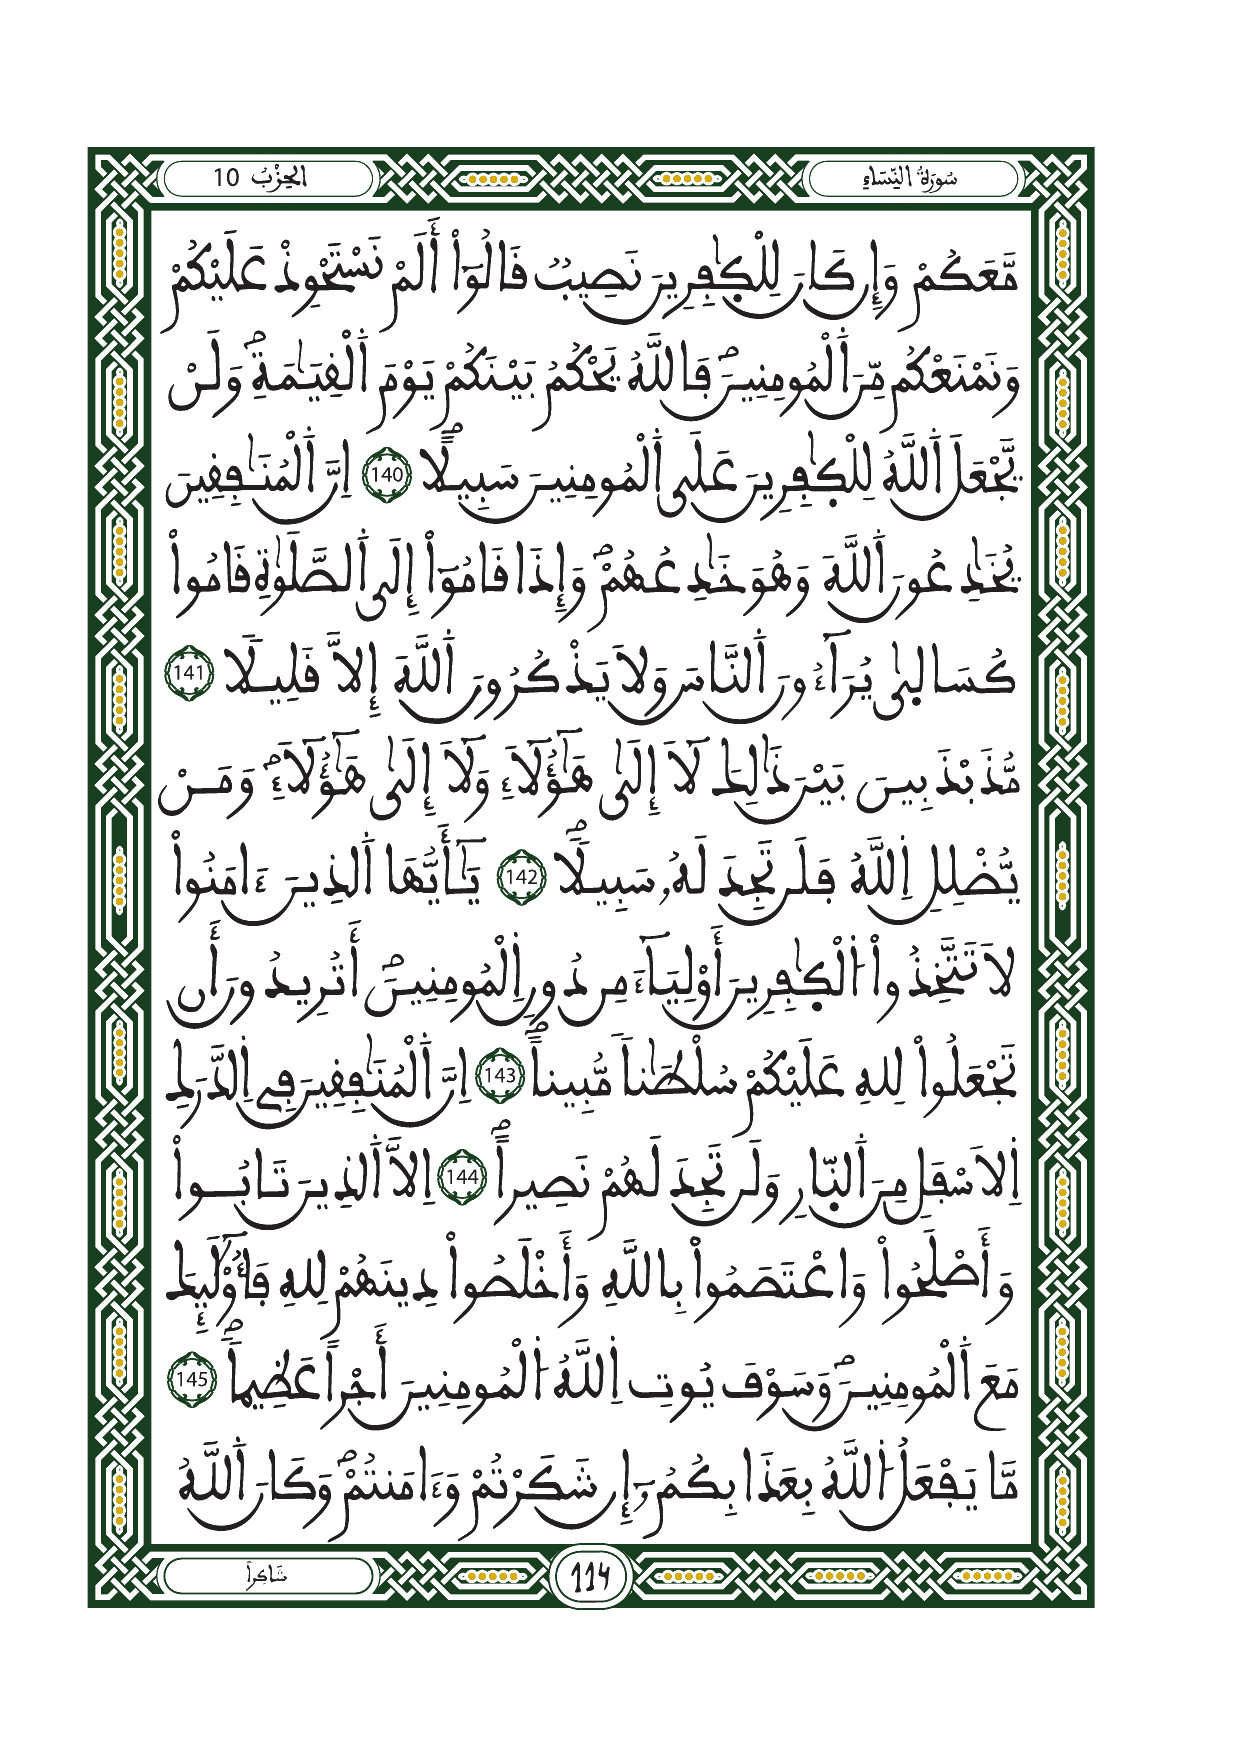 سُورَةُ النِّسَاءِ
الحِزْبُ 10
مَّعَكُمْ وَإِن كَانَ لِلْكٰفِرِينَ نَصِيبٌ قَالُوٓاْ أَلَمْ نَسْتَحْوِذْ عَلَيْكُمْ
وَنَمْنَعْكُم مِّنَ اَ۬لْمُومِنِينَۖ فَاللَّهُ يَحْكُمُ بَيْنَكُمْ يَوْمَ اَ۬لْقِيَٰمَةِۖ وَلَنْ
يَّجْعَلَ اَ۬للَّهُ لِلْكٰفِرِينَ عَلَى اَ۬لْمُومِنِينَ سَبِيلاًۖ 140 اِنَّ اَ۬لْمُنَٰفِقِينَ
يُخَٰدِعُونَ اَ۬للَّهَ وَهُوَ خَٰدِعُهُمْۖ وَإِذَا قَامُوٓاْ إِلَى اَ۬لصَّلَوٰةِ قَامُواْ
كُسَالٜىٰ يُرَآءُونَ اَ۬لنَّاسَ وَلاَ يَذْكُرُونَ اَ۬للَّهَ إِلاَّ قَلِيلاٗ 141
مُّذَبْذَبِينَ بَيْنَ ذَٰلِكَ لَآ إِلَىٰ هَٰٓؤُلَآءِ وَلَآ إِلَىٰ هَٰٓؤُلَآءِۖ وَمَنْ
يُّضْلِلِ اِ۬للَّهُ فَلَن تَجِدَ لَهُۥ سَبِيلاٗۖ 142 يَٰٓأَيُّهَا اَ۬لذِينَ ءَامَنُواْ
لاَ تَتَّخِذُواْ اُ۬لْكٰفِرِينَ أَوْلِيَآءَ مِن دُونِ اِ۬لْمُومِنِينَۖ أَتُرِيدُونَ أَن
تَجْعَلُواْ لِلهِ عَلَيْكُمْ سُلْطَٰناٗ مُّبِيناًۖ 143 اِنَّ اَ۬لْمُنَٰفِقِينَ فِے اِ۬لدَّرَكِ
اِ۬لاَسْفَلِ مِنَ اَ۬لنّٜارِ وَلَن تَجِدَ لَهُمْ نَصِيراًۖ 144 اِلاَّ اَ۬لذِينَ تَابُواْ
وَأَصْلَحُواْ وَاعْتَصَمُواْ بِاللَّهِ وَأَخْلَصُواْ دِينَهُمْ لِلهِ فَأُوْلَٰٓئِكَ
مَعَ اَ۬لْمُومِنِينَۖ وَسَوْفَ يُوتِ اِ۬للَّهُ اُ۬لْمُومِنِينَ أَجْراً عَظِيماٗۖ 145
مَّا يَفْعَلُ اُ۬للَّهُ بِعَذَابِكُمُۥٓ إِن شَكَرْتُمْ وَءَامَنتُمْۖ وَكَانَ اَ۬للَّهُ
114
شَاكِراً